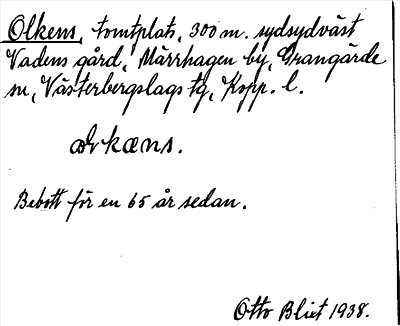 Olkens, tomtplats, 300 m. sydsydväst
Vadens gård, Mårrhagen by, Grangärde
sn, Västerbergslags tg, Kopp. l.
kæns.
Bebott för en 65 år sedan.
Otto Blixt 1938.